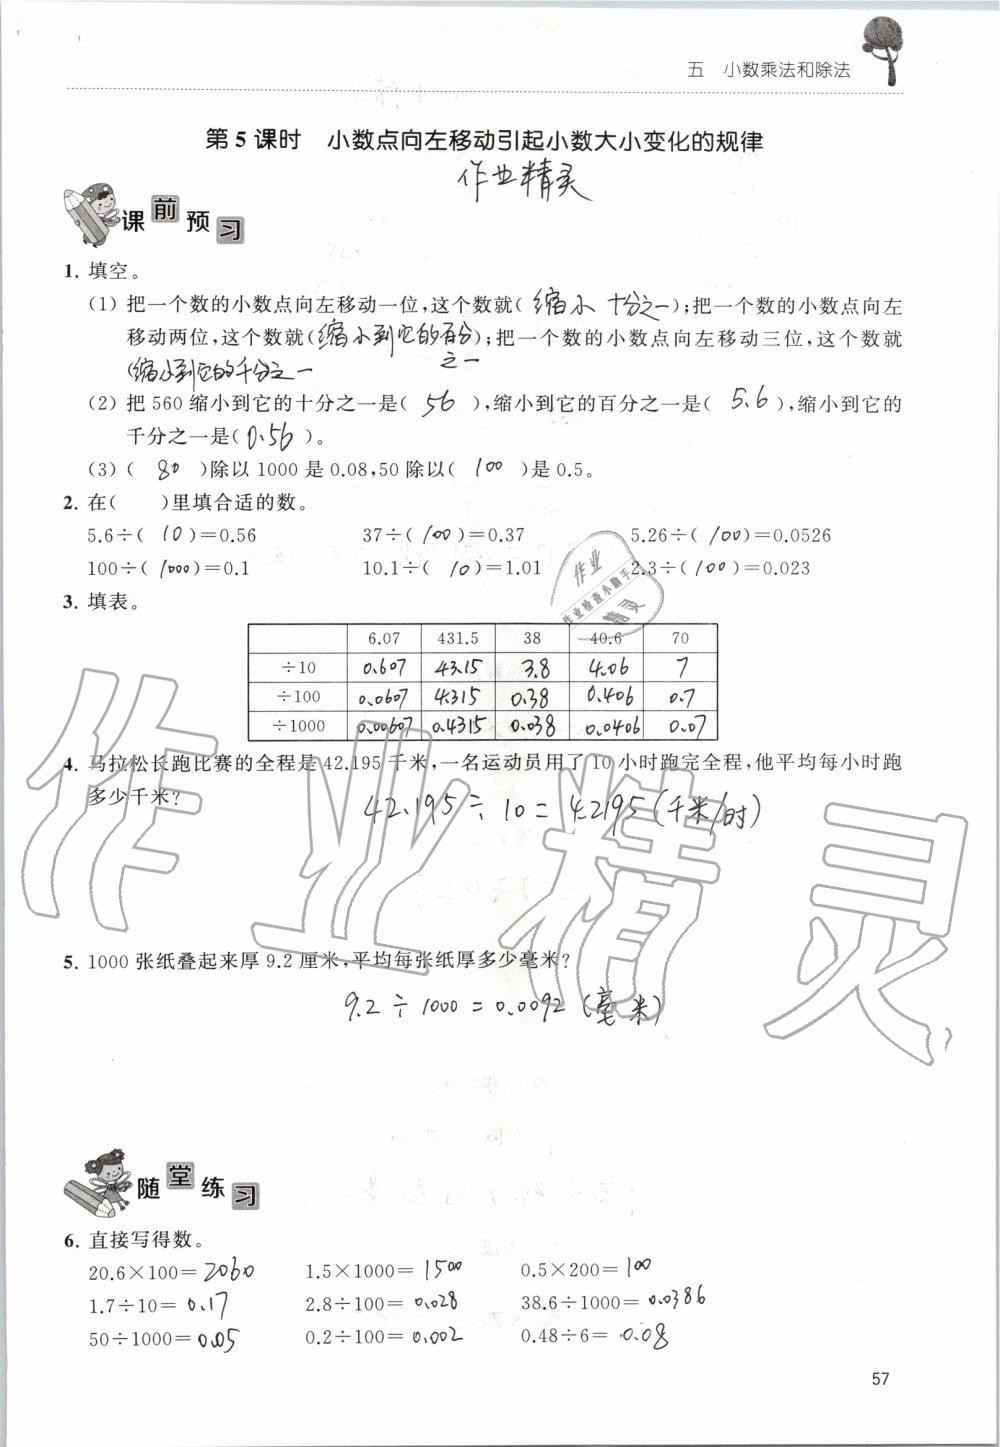 五 小数乘法和除法
第 5 课时 小数点向左移动引起小数大小变化的规律
作业精灵
课前预习
1. 填空。
(1) 把一个数的小数点向左移动一位,这个数就( 缩小 十分之一 );把一个数的小数点向左
移动两位,这个数就( 缩小到它的百分之一 );把一个数的小数点向左移动三位,这个数就
( 缩小到它的千分之一
(2) 把 560 缩小到它的十分之一是( 56 ),缩小到它的百分之一是( 5.6 ),缩小到它的
千分之一是( 0.56 )。
(3) ( 80 )除以 1000 是 0.08,50 除以( 100 )是 0.5。
2. 在( )里填合适的数。
5.6÷( 10 )=0.56 37÷( 100 )=0.37 5.26÷( 100 )=0.0526
100÷( 1000 )=0.1 10.1÷( 10 )=1.01 2.3÷( 100 )=0.023
3. 填表。
6.07 431.5 38 40.6 70
÷10 0.607 43.15 3.8 4.06 7
÷100 0.0607 4.315 0.38 0.406 0.7
÷1000 0.00607 0.4315 0.038 0.0406 0.07
4. 马拉松长跑比赛的全程是 42.195 千米,一名运动员用了 10 小时跑完全程,他平均每小时跑
多少千米?
42.195÷10=4.2195(千米/时)
5. 1000 张纸叠起来厚 9.2 厘米,平均每张纸厚多少毫米?
9.2÷1000=0.0092(毫米)
随堂练习
6. 直接写得数。
20.6×100=2060 1.5×1000=1500 0.5×200=100
1.7÷10=0.17 2.8÷100=0.028 38.6÷1000=0.0386
50÷1000=0.05 0.2÷100=0.002 0.48÷6=0.08
57
作业
作业检查小助手
精灵
作业精灵